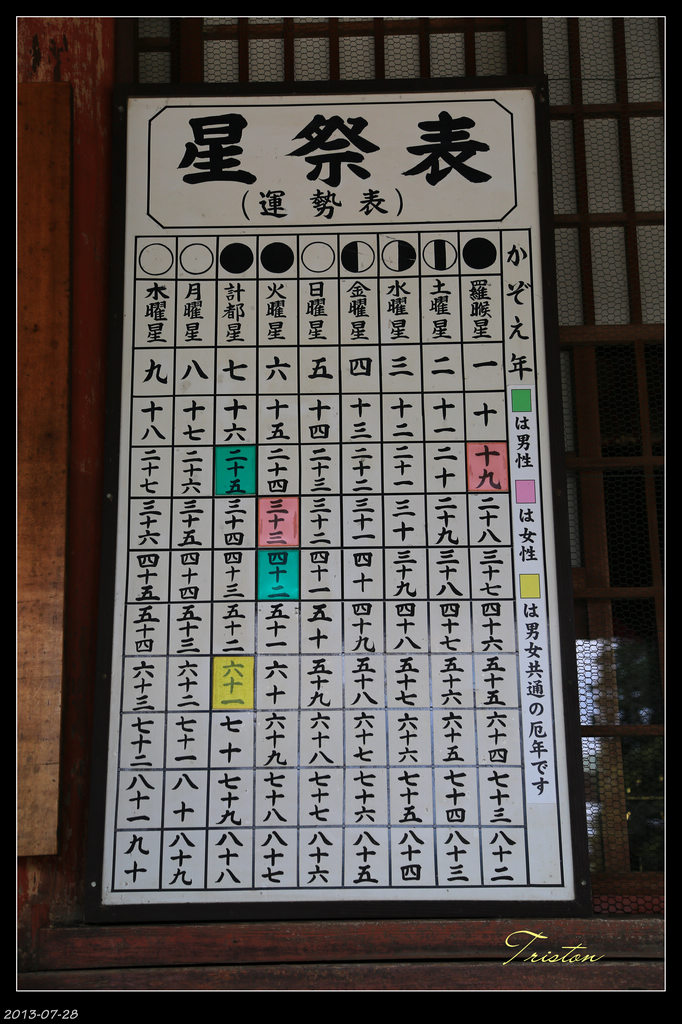 星祭表
(運勢表)
かぞえ年
は男性
は女性
は男女共通の厄年です
羅睺星 一 十 十九 二十八 三十七 四十六 五十五 六十四 七十三 八十二
土曜星 二 十一 二十 二十九 三十八 四十七 五十六 六十五 七十四 八十三
水曜星 三 十二 二十一 三十 三十九 四十八 五十七 六十六 七十五 八十四
金曜星 四 十三 二十二 三十一 四十 四十九 五十八 六十七 七十六 八十五
日曜星 五 十四 二十三 三十二 四十一 五十 五十九 六十八 七十七 八十六
火曜星 六 十五 二十四 三十三 四十二 五十一 六十 六十九 七十八 八十七
計都星 七 十六 二十五 三十四 四十三 五十二 六十一 七十 七十九 八十八
月曜星 八 十七 二十六 三十五 四十四 五十三 六十二 七十一 八十 八十九
木曜星 九 十八 二十七 三十六 四十五 五十四 六十三 七十二 八十一 九十
Triston
2013-07-28